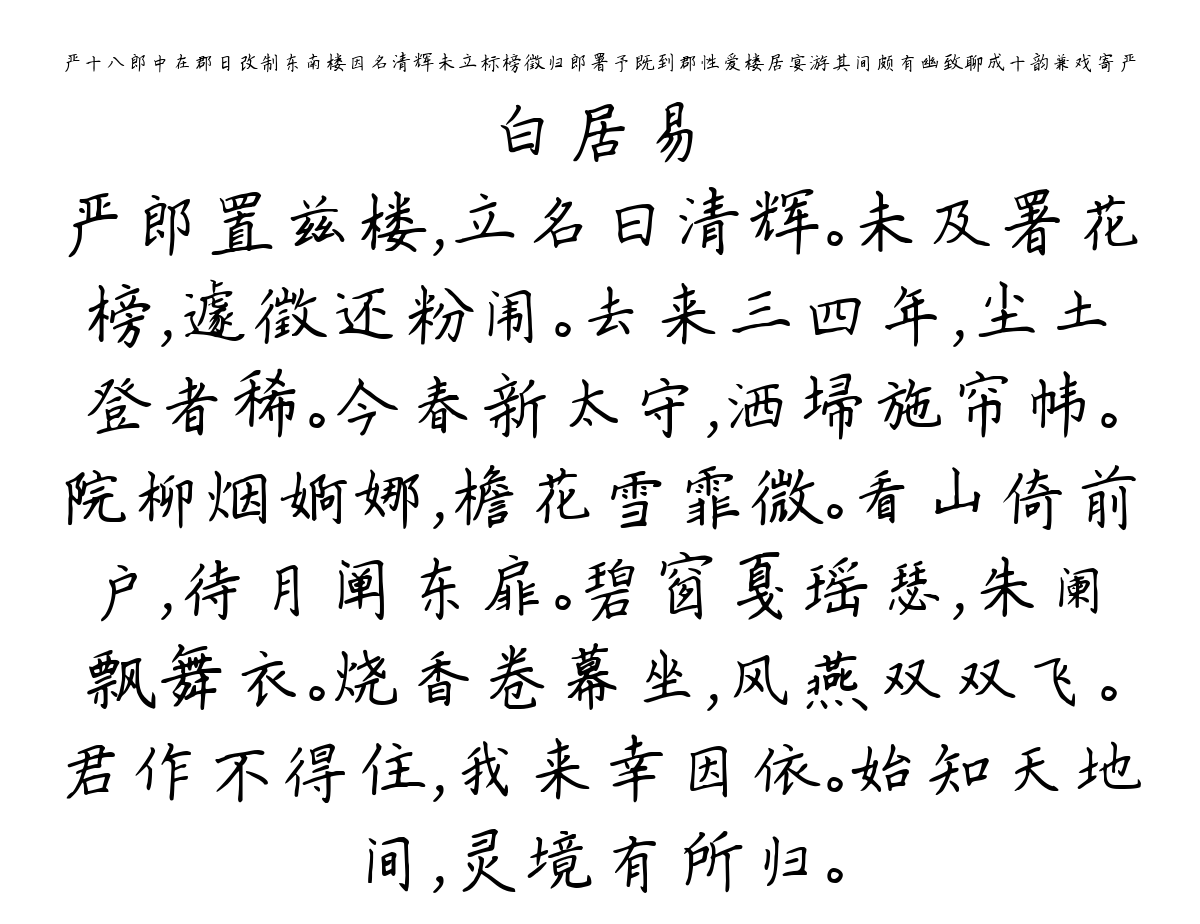 严十八郎中在郡日改制东南楼因名清辉未立标榜徵归郎署予既到郡性爱楼居宴游其间颇有幽致聊成十韵兼戏寄严
白居易
严郎置兹楼,立名曰清辉。未及署花
榜,遽徵还粉闱。去来三四年,尘土
登者稀。今春新太守,洒埽施帘帏。
院柳烟婀娜,檐花雪霏微。看山倚前
户,待月阐东扉。碧窗戛瑶瑟,朱阑
飘舞衣。烧香卷幕坐,风燕双双飞。
君作不得住,我来幸因依。始知天地
间,灵境有所归。